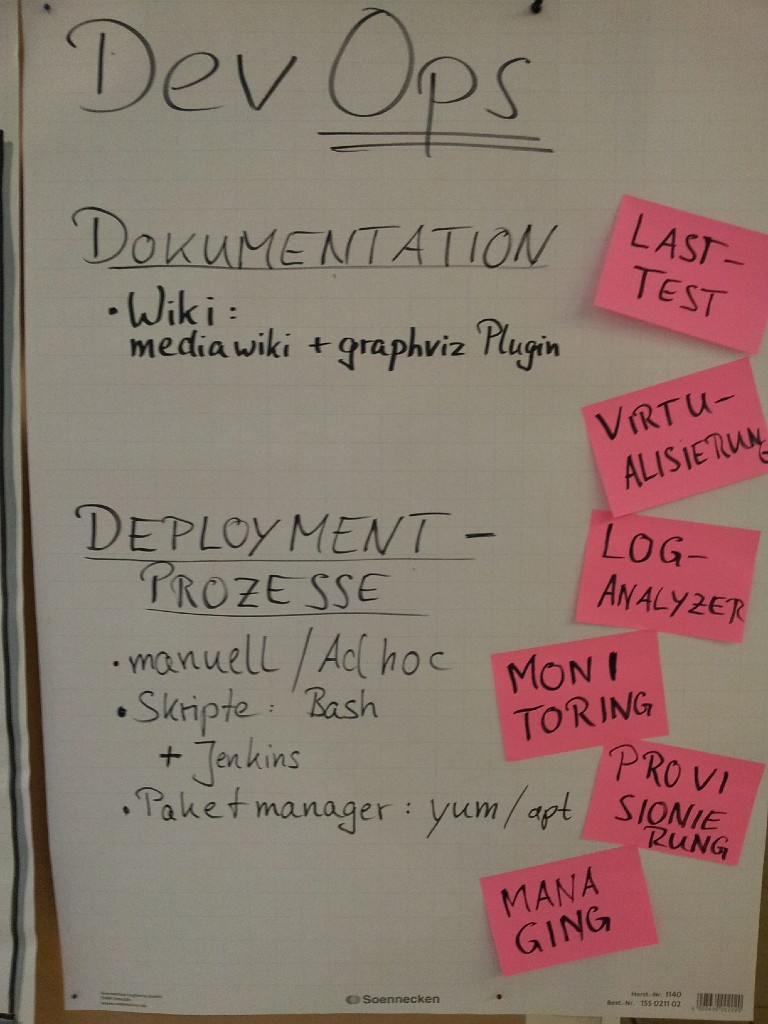 Dev Ops
DOKUMENTATION
• Wiki :
mediawiki + graphviz Plugin
DEPLOYMENT -
PROZESSE
• manuell / Ad hoc
• Skripte : Bash
+ Jenkins
• Paketmanager : yum / apt
LAST-
TEST
VIRTU-
ALISIERUNG
LOG-
ANALYZER
MONI
TORING
PROVI
SIONIE
RUNG
MANA
GING
Soennecken
Herst.-Nr. 1140
Best.-Nr. 155 0211 02